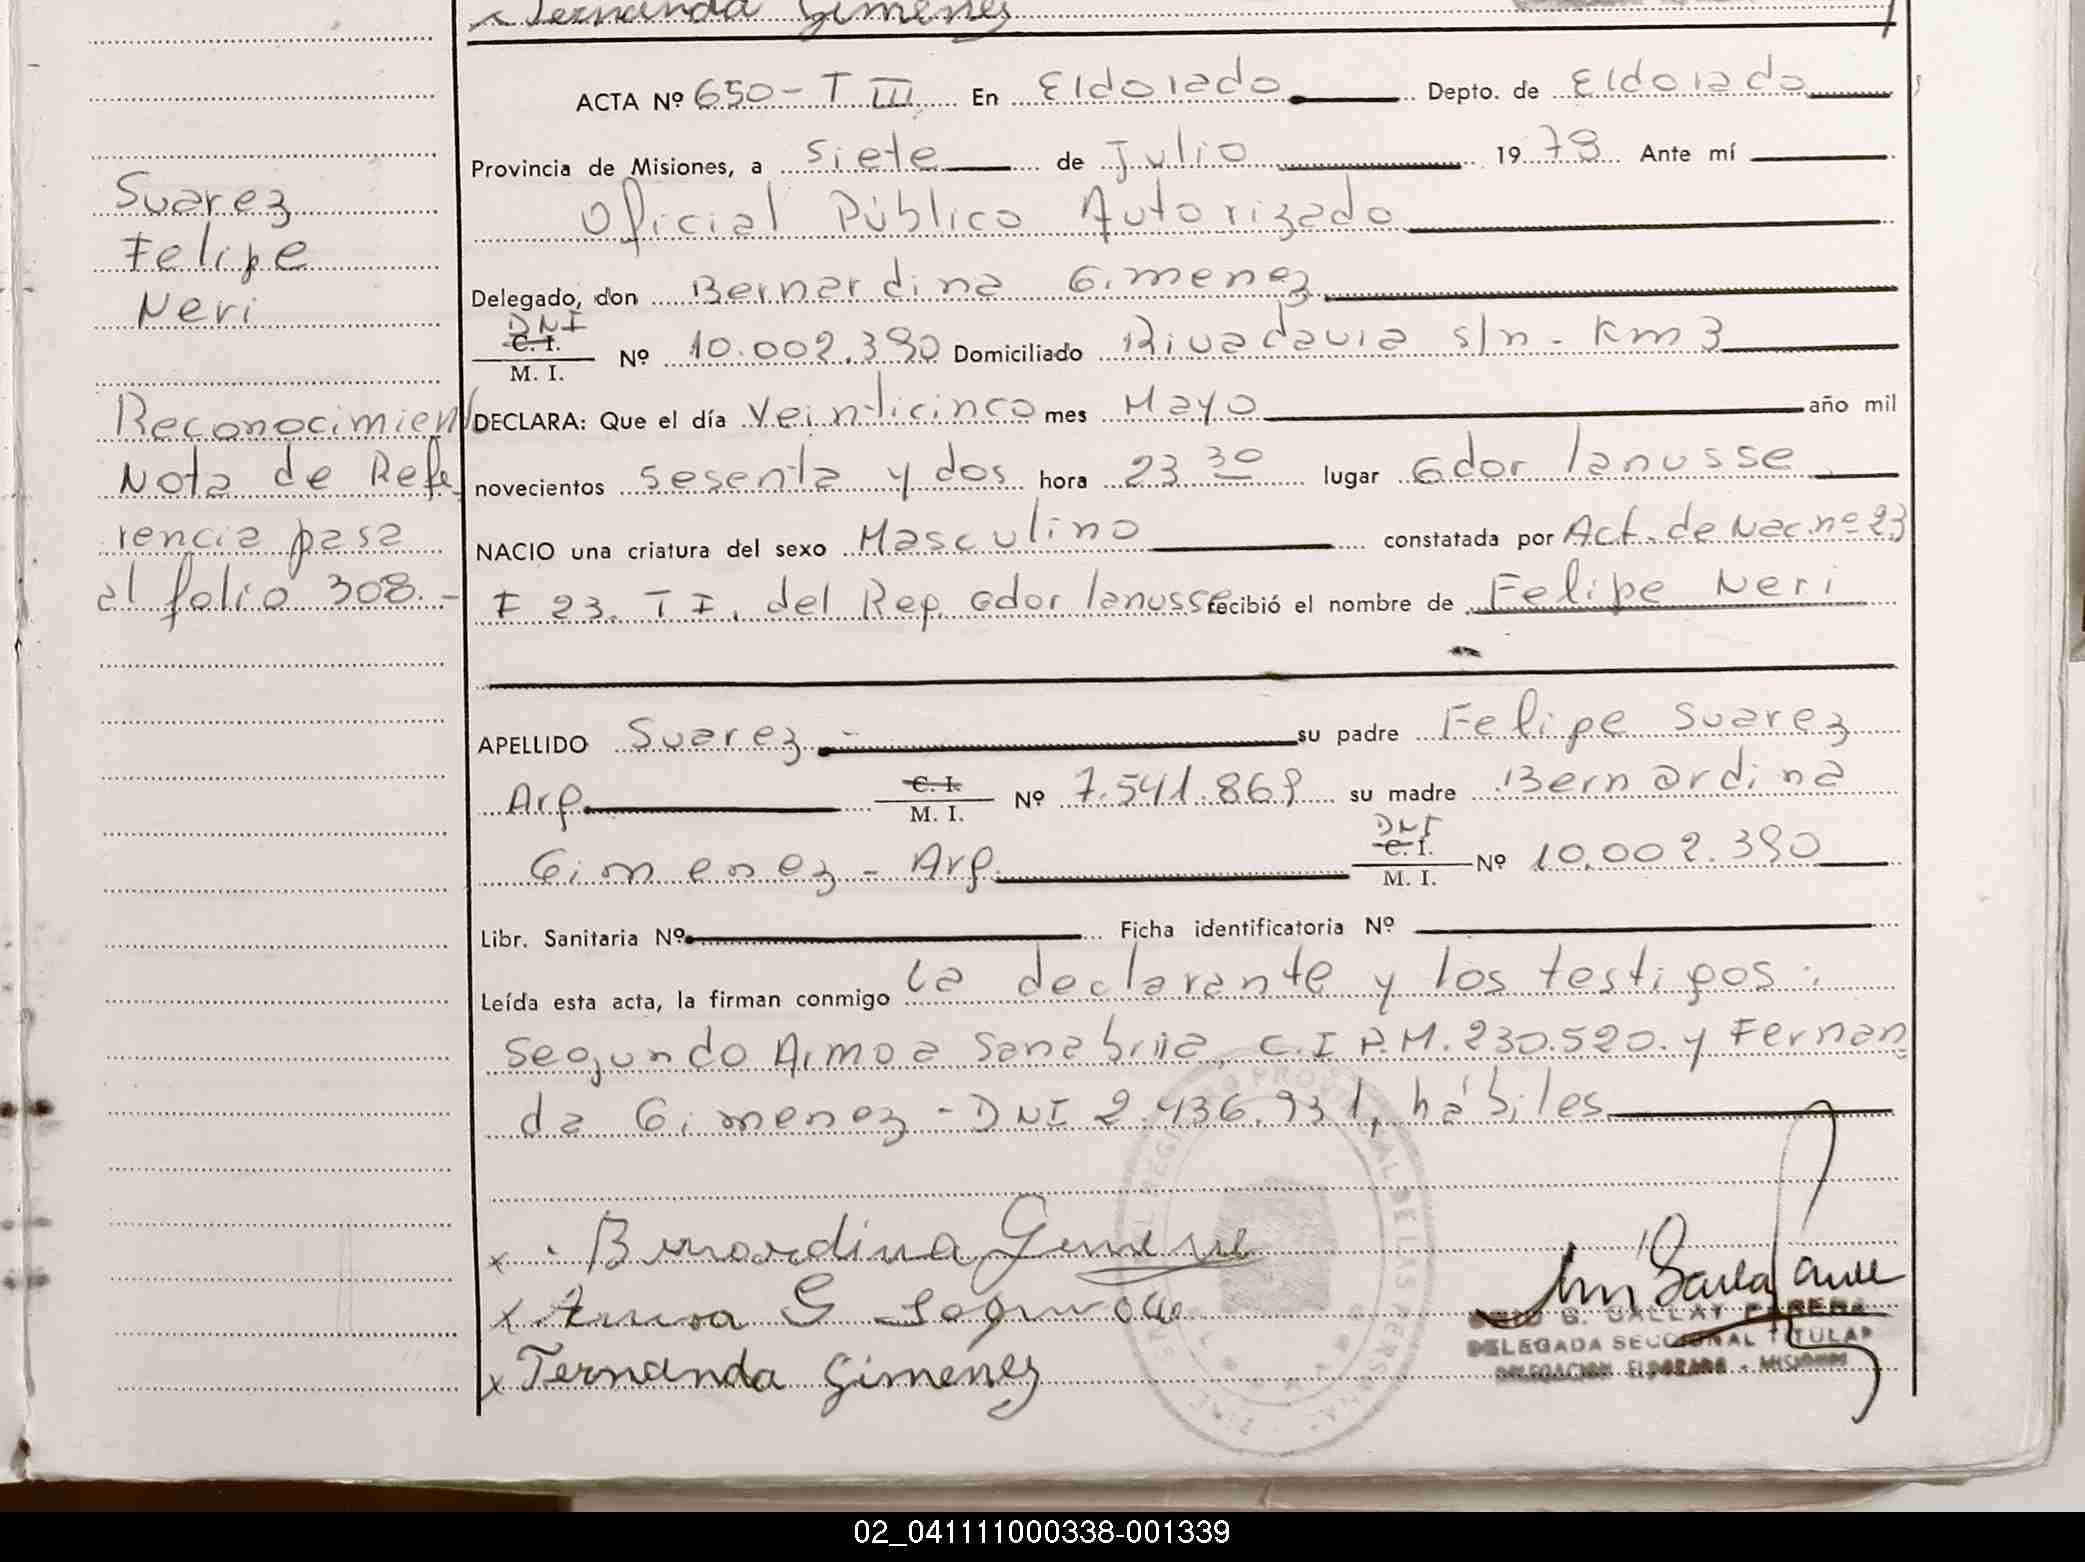 Fernanda Gimenez
ACTA Nº 650 - T III En Eldorado Depto. de Eldorado
Provincia de Misiones, a siete de Julio 1978 Ante mí
Oficial Público Autorizado
Delegado, don Bernardina Gimenez
DNI
C. I.
M. I. Nº 10.002.390 Domiciliado Rivadavia s/n - Km 3
DECLARA: Que el día Veinticinco mes Mayo año mil
novecientos sesenta y dos hora 23 30 lugar Gdor lanusse
NACIO una criatura del sexo Masculino constatada por Act. de Nac. nº 23
F 23. T I. del Rep. Gdor lanusse recibió el nombre de Felipe Neri
APELLIDO Suarez - su padre Felipe Suarez
Arg. C. I.
M. I. Nº 7.541.869 su madre Bernardina
Gimenez - Arg. DNI
C. I.
M. I. Nº 10.002.390
Libr. Sanitaria Nº Ficha identificatoria Nº
Leída esta acta, la firman conmigo la declarante y los testigos:
Segundo Armoa Sanabria, C.I P.M. 230.520. y Fernan
da Gimenez - DNI 2.436.931, hábiles
Suarez
Felipe
Neri
Reconocimiento
Nota de Refe
rencia pasa
al folio 308.-
x Bernardina Gimenez
x
x Fernanda Gimenez
REGISTRO PROVINCIAL DE LAS PERSONAS
G. GALLAY PERERA
DELEGADA SECCIONAL TITULAR
DELEGACION ELDORADO - MISIONES
02_041111000338-001339